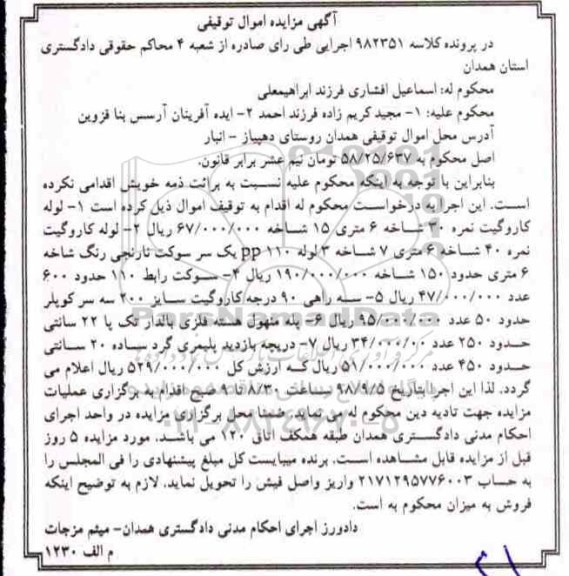 آگهی مزایده اموال توقیفی
در پرونده کلاسه ۹۸۲۳۵۱ اجرایی طی رای صادره از شعبه ۴ محاکم حقوقی دادگستری
استان همدان
محکوم له: اسماعیل افشاری فرزند ابراهیمعلی
محکوم علیه: ۱- مجید کریم زاده فرزند احمد ۲- ایده آفرینان آرسس بنا قزوین
آدرس محل اموال توقیفی همدان روستای دهپیاز - انبار
اصل محکوم به ۵۸/۲۵/۶۳۷ تومان نیم عشر برابر قانون.
بنابراین با توجه به اینکه محکوم علیه نسبت به برائت ذمه خویش اقدامی نکرده
است. این اجرا به درخواست محکوم له اقدام به توقیف اموال ذیل کرده است ۱- لوله
کاروگیت نمره ۳۰ شاخه ۶ متری ۱۵ شاخه ۶۷/۰۰۰/۰۰۰ ریال ۲- لوله کاروگیت
نمره ۴۰ شاخه ۶ متری ۷ شاخه ۳ لوله ۱۱۰ pp یک سر سوکت نارنجی رنگ شاخه
۶ متری حدود ۱۵۰ شاخه ۱۹۰/۰۰۰/۰۰۰ ریال ۴- سوکت رابط ۱۱۰ حدود ۶۰۰
عدد ۴۷/۰۰۰/۰۰۰ ریال ۵- سه راهی ۹۰ درجه کاروگیت سایز ۲۰۰ سه سر کوپلر
حدود ۵۰ عدد ۹۵/۰۰۰/۰۰۰ ریال ۶- پله منهول هسته فلزی بالدار تک پا ۲۲ سانتی
حدود ۲۵۰ عدد ۳۴/۰۰۰/۰۰ ریال ۷- دریچه بازدید پلیمری گرد ساده ۲۰ سانتی
حدود ۴۵۰ عدد ۵۱/۰۰۰/۰۰۰ ریال که ارزش کل ۵۲۹/۰۰۰/۰۰۰ ریال اعلام می
گردد. لذا این اجرا بتاریخ ۹۸/۹/۵ ساعت ۸/۳۰ الی ۹ صبح اقدام به برگزاری عملیات
مزایده جهت تادیه دین محکوم له می نماید. ضمنا محل برگزاری مزایده در واحد اجرای
احکام مدنی دادگستری همدان طبقه همکف اتاق ۱۲۰ می باشد. مورد مزایده ۵ روز
قبل از مزایده قابل مشاهده است. برنده میبایست کل مبلغ پیشنهادی را فی المجلس را
به حساب ۲۱۷۱۲۹۵۷۷۶۰۰۳ واریز واصل فیش را تحویل نماید. لازم به توضیح اینکه
فروش به میزان محکوم به است.
دادورز اجرای احکام مدنی دادگستری همدان- میثم مزجات
م الف ۱۲۳۰
ParsNamadData
۰۲۱-۸۸۳۴۹۶۷۰-۵